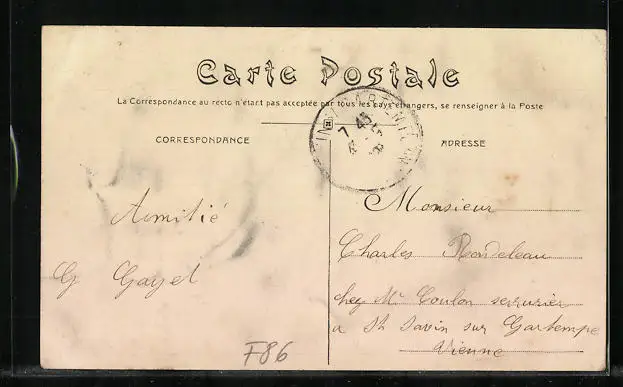 Carte Postale
La Correspondance au recto n'étant pas acceptée par tous les pays étrangers, se renseigner à la Poste
CORRESPONDANCE
ADRESSE
7 45
Amitié
G Gayet
Monsieur
Charles Rondeleau
chez Mr Coulon serrurier
a St Savin sur Gartempe
Vienne
F86